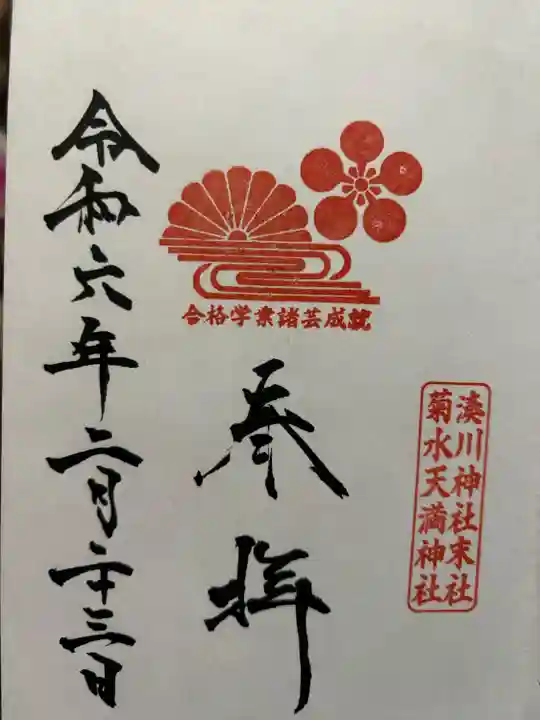 合格学業諸芸成就
湊川神社末社
菊水天満神社
奉拝
令和六年二月二十三日